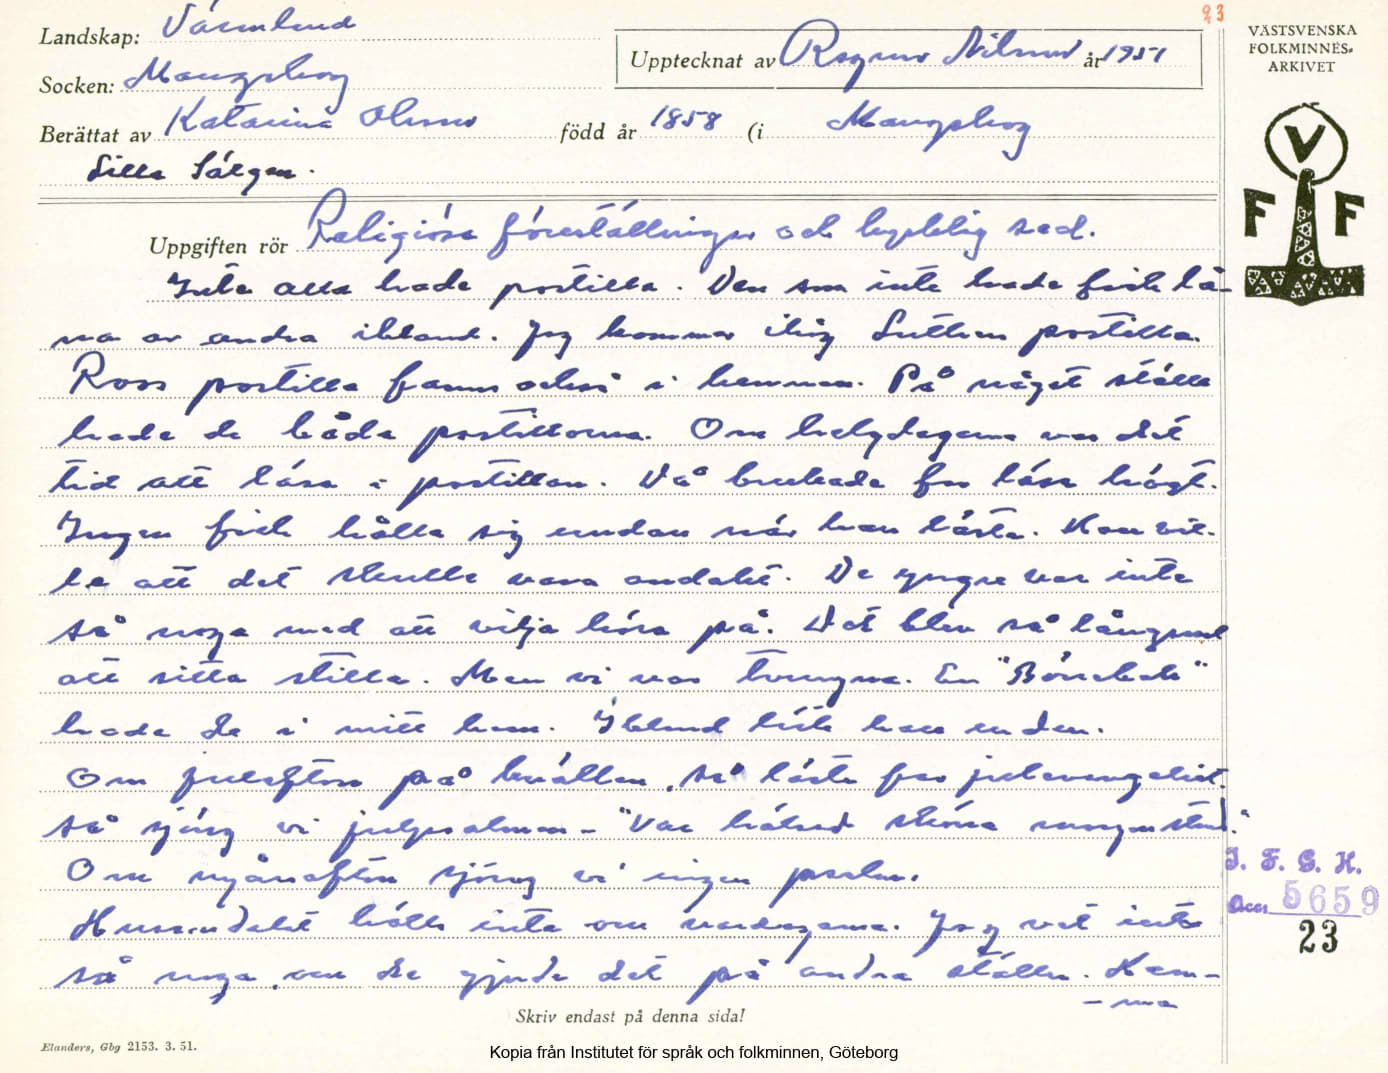 23
Landskap: Värmland
VÄSTSVENSKA
FOLKMINNES-
ARKIVET
Upptecknat av Ragnar Nilsson år 1951
Socken: Mangskog
Berättat av Katarina Olsson född år 1858 (i Mangskog
Lilla Sälgen.
V
F F
Uppgiften rör Religiösa föreställningar och kyrklig sed.
Inte alla hade postilla. Den som inte hade fick lå-
na av andra ibland. Jag kommer ihåg Luthers postilla.
Ross postilla fanns också i hemmen. På något ställe
hade de båda postillorna. Om helgdagarna var det
tid att läsa i postillan. Då brukade far läsa högt.
Ingen fick hålla sig undan när han läste. Han vil-
le att det skulle vara andakt. De yngre var inte
så noga med att vilja höra på. Det blev så långsamt
att sitta stilla. Men vi var tvungna. En "Bönebok"
hade de i mitt hem. Ibland läste han ur den.
Om julafton på kvällen, så läste far julevangeliet.
så sjöng vi julpsalmen - "Var hälsad sköna morgonstund."
Om nyårsafton sjöng vi ingen psalm.
Husandakt hölls inte om vardagarna. Jag vet inte
så noga, om de gjorde det på andra ställen. Hem-
- ma
I. F. G. H.
Acc. 5659
23
Skriv endast på denna sida!
Elanders, Gbg 2153. 3. 51.
Kopia från Institutet för språk och folkminnen, Göteborg